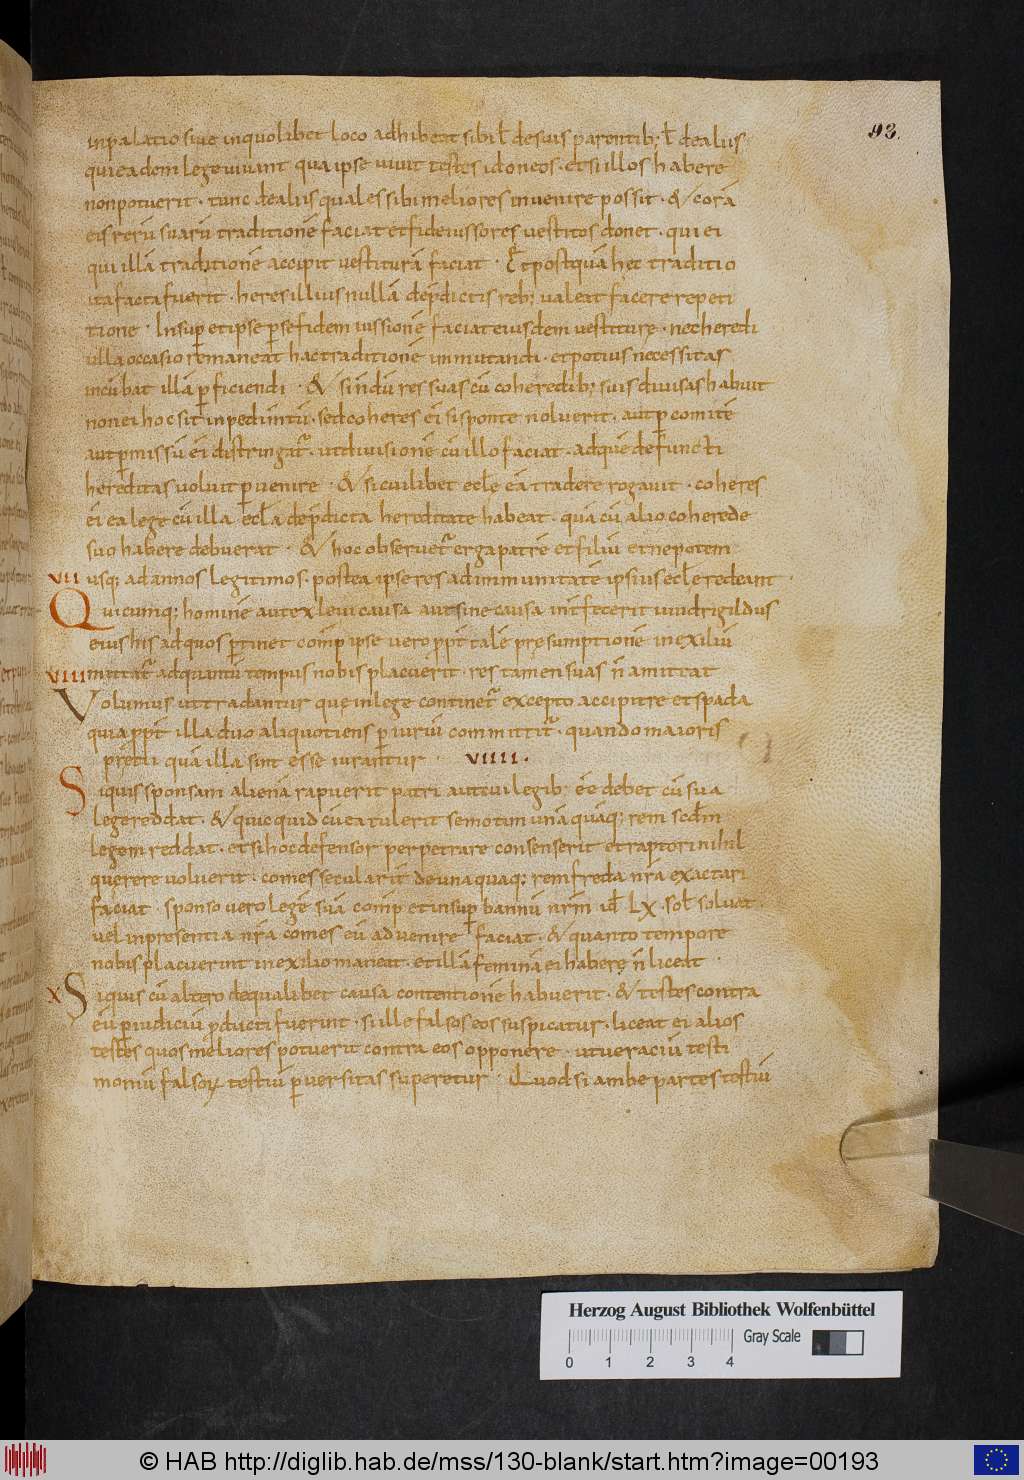 93.
inpalatio siue inquolibet loco adhibeat sibi ł desuis parentib; ł dealiis
qui eadem lege uiuunt qua ipse uiuit testes idoneos · et si illos habere
nonpotuerit · tunc dealiis quales sibi meliores inuenire possit · & corā
eis rerū suarū traditionē faciat et fideiussores uestitos donet · qui ei
qui illā traditionē accipit uestiturā faciat · Et postquā hec traditio
ita facta fuerit · heres illius nullā dep̄dictis reb; ualeat facere repeti
tione · Insup̄ et ipse p̱ se fidemiussionē faciat eiusdem uestiturę · ne heredi
ulla occasio remaneat hac traditionē inmutandi · et potius necessitas
incūbat illā p̱ficiendi · & si nondū res suas cū coheredib; suis diuisas habuit
non ei hoc sit inpedimtū · sed coheres ei si sponte noluerit · aut p̱ comitē
aut p̱ missū ei distringat᷑ · ut diuisionē cū illo faciat · ad quē defuncti
hereditas uoluit p̱uenire · & si cuilibet ecłe eā tradere rogauit · coheres
ei ea lege cū illa ecła dep̄dicta hereditate habeat · quā cū alio coherede
suo habere debuerat · & hoc obseruet᷑ erga patrē et filiū et nepotem
VII usq; ad annos legitimos · postea ipse res ad inmunitatē ipsius ecłe redeant ·
Quicumq; hominē aut ex leui causa aut sine causa intfecerit uuidrigildus
eius his ad quos p̱tinet comp̄ ipse uero p̱pt̄ talē presumptionē in exiliū
VIII mittat᷑ ad quantū tempus nobis placuerit · res tamen suas n̄ amittat
Volumus ut tradantur quę in lege continet᷑ excepto accipitre et spada
quia p̱pt̄ illa duo aliquotiens p̱iuriū committit᷑ · quando maioris
pretii quā illa sint esse iurantur · VIIII ·
Siquis sponsam alienā rapuerit patri aut eui legib; eē debet cū sua
lege reddat · & quicquid cū ea tulerit semotim unā quāq; rem scdm̄
legem reddat · et si hoc defensor perpetrare consenserit et raptori nihil
querere uoluerit · comes secularit de una quaq; rem freda nr̄a exactari
faciat · sponso uero legē suā comp̄ et insup̄ bannū nr̄m id̄ LX · soł soluat ·
uel in presentia nr̄a comes eū aduenire faciat · & quanto tempore
nobis placuerint in exilio maneat · et illā feminā ei habere n̄ liceat ·
X Siquis cū altero de qualibet causa contentionē habuerit · & testes contra
eū p̱ iudiciū p̱ducti fuerint · si ille falsos eos suspicatur · liceat ei alios
testes quos meliores potuerit contra eos opponere · ut ueraciū testi
moniū falsoꝝ testiū p̱uersitas superetur · Quod si ambe partes testiū
Herzog August Bibliothek Wolfenbüttel
Gray Scale
0 1 2 3 4
© HAB http://diglib.hab.de/mss/130-blank/start.htm?image=00193